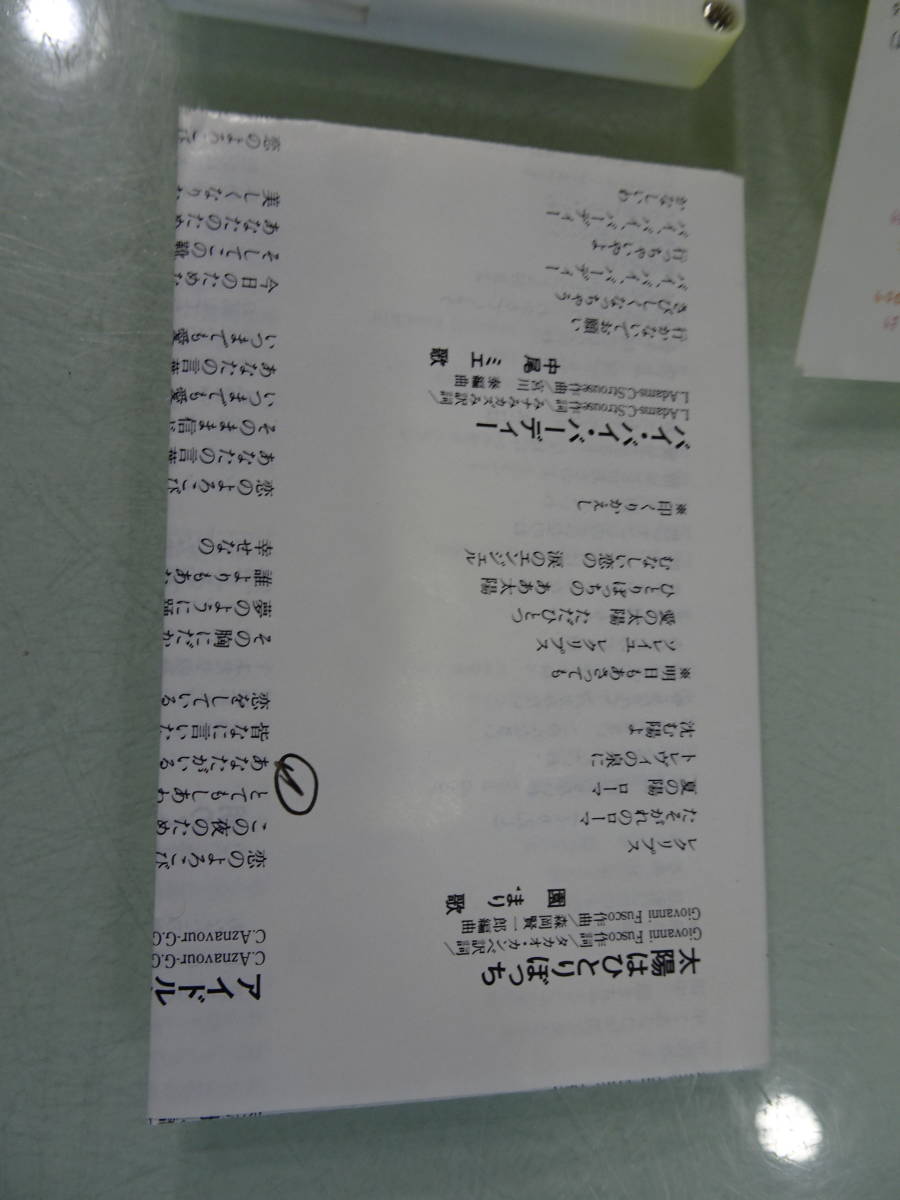 太陽はひとりぼっち
Giovanni Fusco作詞/タカオ・カンベ訳詞/
Giovanni Fusco作曲/森岡賢一郎編曲
園 まり 歌
レクリプス
たそがれのローマ
夏の陽 ローマ
トレヴィの泉に
沈む陽よ
※明日もあさっても
ソレイユ レクリプス
愛の太陽 ただひとつ
ひとりぼっちの ああ太陽
むなしい恋の 涙のエンジェル
※印くりかえし
バイ・バイ・バーディー
L.Adams-C.Strouse作詞/みナみカズみ訳詞/
L.Adams-C.Strouse作曲/宮川 泰編曲
中尾 ミエ 歌
行かないでお願い
さびしくなっちゃう
バイ、バイ、バーディー
行っちゃいやよ
バイ、バイ、バーディー
かなしいわ
アイドル
C.Aznavour-G.G
C.Aznavour-G.G
恋のよろこび
この夜のため
とてもしあわ
あなたがいる
皆なに言いた
恋をしている
その胸にだか
夢のように踊
誰よりもあな
幸せなの
恋のよろこび
あなたの言葉
そのまま信じ
いつまでも愛
あなたの言葉
いつまでも愛
今日のためな
そしてこの歌
あなたのため
美しくなりた
恋のよろこび